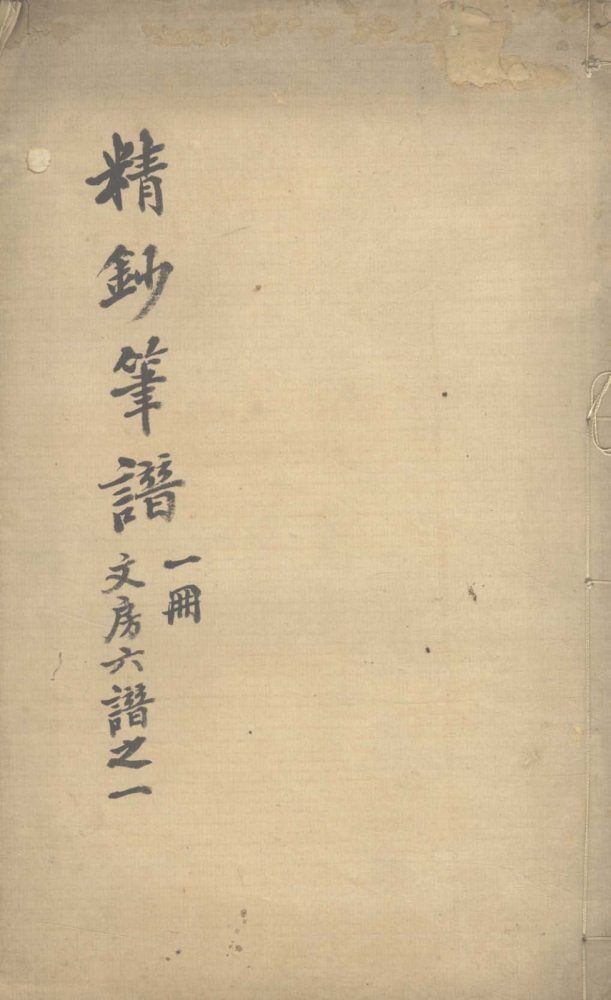 精鈔筆譜
一冊
文房六譜之一